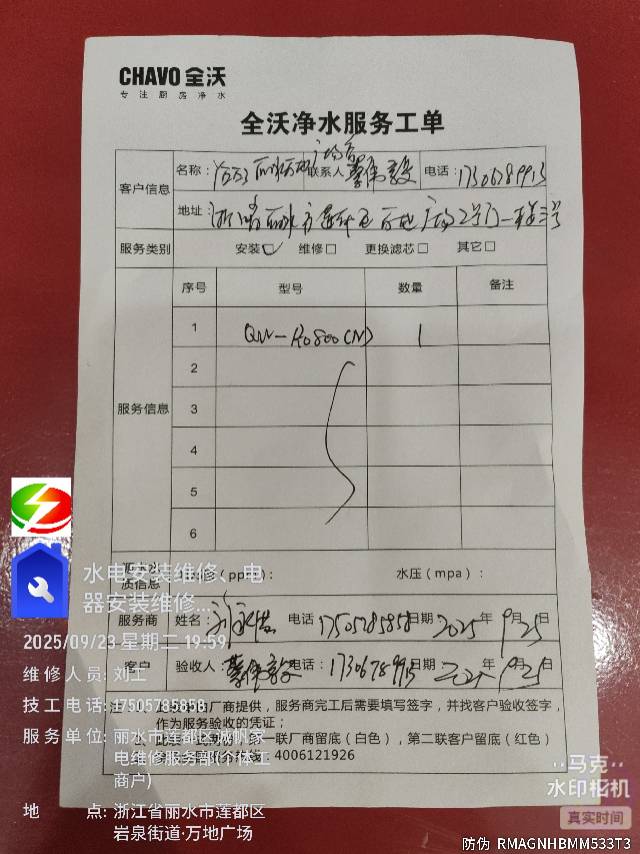 CHAVO 全沃
专注厨房净水
全沃净水服务工单
客户信息
名称：
联系人
电话：17306789913
地址：浙江省丽水市莲都区万地广场2号门一楼
服务类别
安装☑ 维修□ 更换滤芯□ 其它□
服务信息
序号 型号 数量 备注
1 QW-R0800(N) 1
2
3
4
5
6
质信息
(ppm)： 水压（mpa）：
服务商 姓名： 电话 17505785858 日期 2025年9月25日
客户 验收人： 电话：17306789913 日期 2025年9月25日
由厂商提供，服务商完工后需要填写签字，并找客户验收签字，
作为服务验收的凭证；
第一联厂商留底（白色），第二联客户留底（红色）
4006121926
水电安装维修、电
器安装维修...
2025/09/23 星期二 19:59
维修人员：刘工
技工电话：17505785858
服务单位：丽水市莲都区诚帆家
电维修服务部(个体工
商户)
地 点：浙江省丽水市莲都区
岩泉街道·万地广场
马克
水印相机
真实时间
防伪 RMAGNHBMM533T3